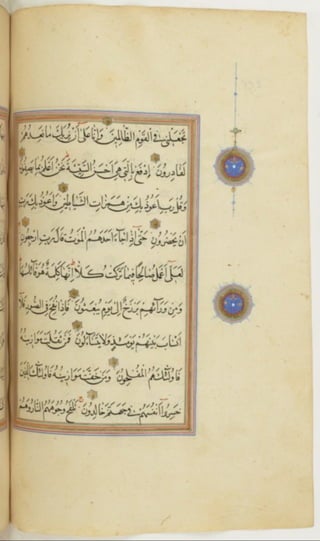 تجعلني في القوم الظالمين وانا على ان نريك ما نعدهم
لقادرون ادفع بالتي هي احسن السيئة نحن اعلم بما يصفون
وقل رب اعوذ بك من همزات الشياطين واعوذ بك رب
ان يحضرون حتى اذا جاء احدهم الموت قال رب ارجعون
لعلي اعمل صالحا فيما تركت كلا انها كلمة هو قائلها
ومن ورائهم برزخ الى يوم يبعثون فاذا نفخ في الصور فلا
انساب بينهم يومئذ ولا يتساءلون فمن ثقلت موازينه
فاولئك هم المفلحون ومن خفت موازينه فاولئك الذين
خسروا انفسهم في جهنم خالدون تلفح وجوههم النار وهم